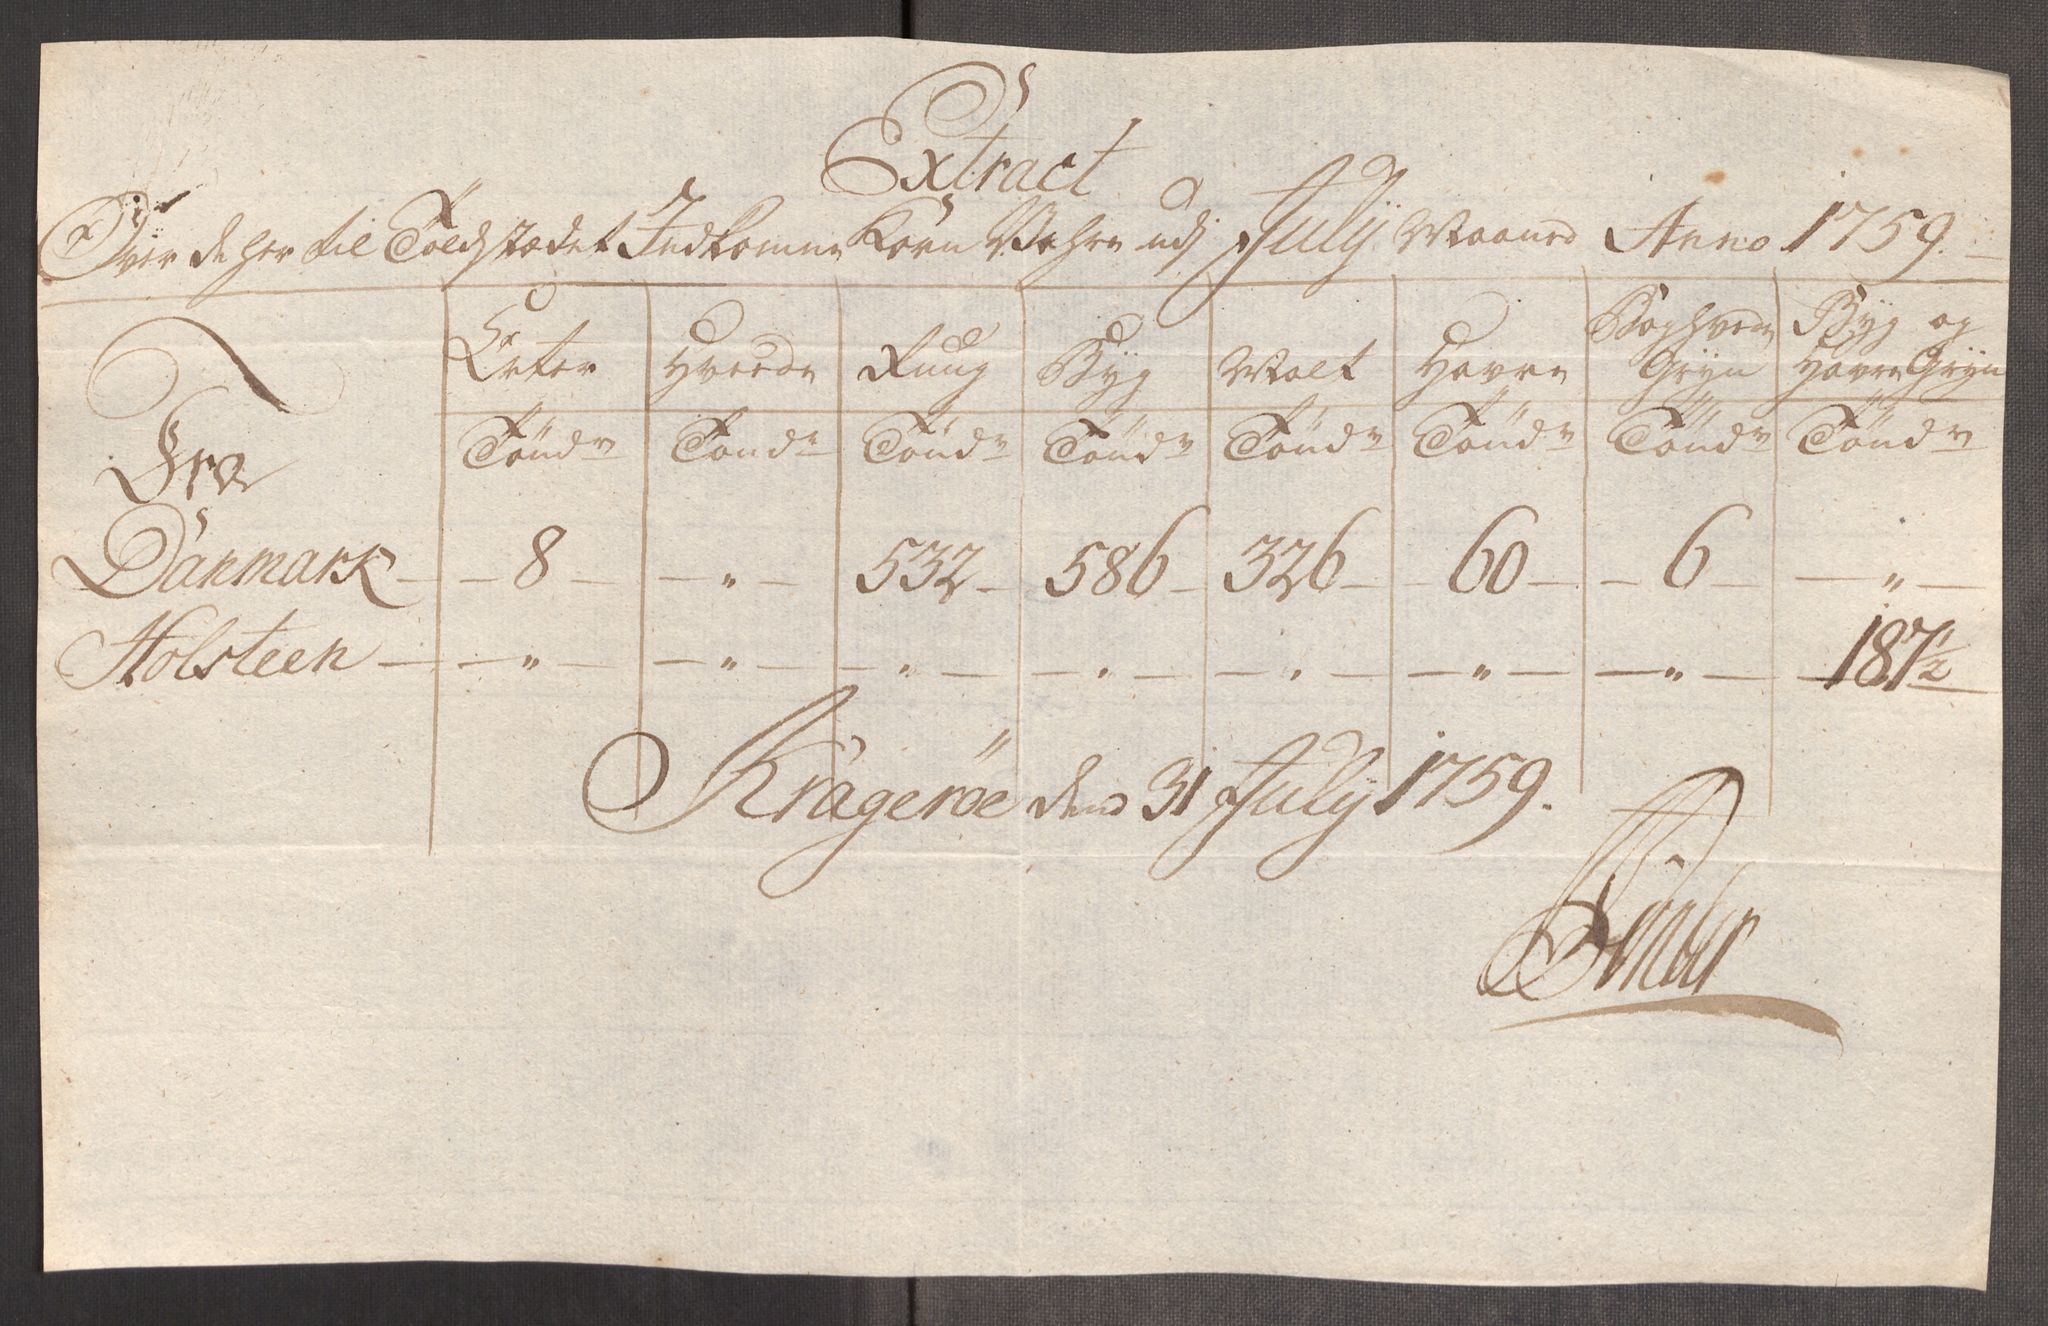 Extract
Over de her til Toldstædet Indkomne Korn Vahre udj July Maaned Anno 1759.
Fra | Erter | Hvede | Ruug | Byg | Malt | Havre | Boghvede Gryn | Byg og Havre Gryn
Tönder | Tönder | Tönder | Tönder | Tönder | Tönder | Tönder | Tönder
Danmark — 8 — " — 532 — 586 — 326 — 60 — 6 — "
Holsteen — " — " — " — " — " — " — " — 187 1/2
Kragerøe den 31 July 1759.